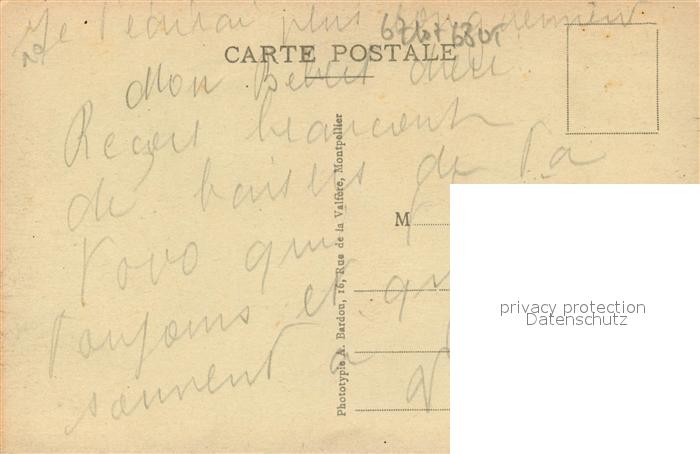 Je t'écrirai plus longuement
CARTE POSTALE
Mon Bébé cheri
Reçois beaucoup
de baisers de ta
Vovo qui
toujours et qui
souvent a
M
Phototypie A. Bardou, 16, Rue de la Valfère, Montpellier
privacy protection
Datenschutz